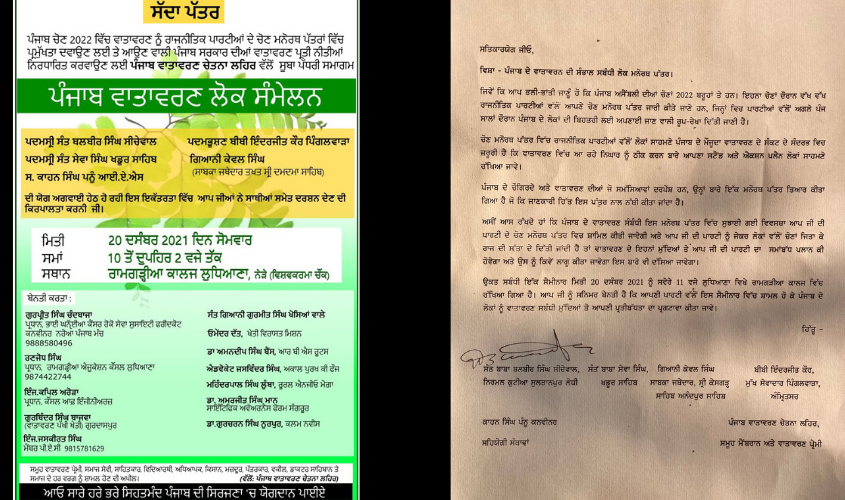 ਸੱਦਾ ਪੱਤਰ
ਪੰਜਾਬ ਚੋਣ 2022 ਵਿੱਚ ਵਾਤਾਵਰਣ ਨੂੰ ਰਾਜਨੀਤਿਕ ਪਾਰਟੀਆਂ ਦੇ ਚੋਣ ਮਨੋਰਥ ਪੱਤਰਾਂ ਵਿੱਚ
ਪ੍ਰਮੁੱਖਤਾ ਦਵਾਉਣ ਲਈ ਤੇ ਆਉਣ ਵਾਲੀ ਪੰਜਾਬ ਸਰਕਾਰ ਦੀਆਂ ਵਾਤਾਵਰਣ ਪ੍ਰਤੀ ਨੀਤੀਆਂ
ਨਿਰਧਾਰਿਤ ਕਰਵਾਉਣ ਲਈ ਪੰਜਾਬ ਵਾਤਾਵਰਣ ਚੇਤਨਾ ਲਹਿਰ ਵੱਲੋਂ ਸੂਬਾ ਪੱਧਰੀ ਸਮਾਗਮ
ਪੰਜਾਬ ਵਾਤਾਵਰਣ ਲੋਕ ਸੰਮੇਲਨ
ਪਦਮਸ੍ਰੀ ਸੰਤ ਬਲਬੀਰ ਸਿੰਘ ਸੀਚੇਵਾਲ
ਪਦਮਸ੍ਰੀ ਸੰਤ ਸੇਵਾ ਸਿੰਘ ਖਡੂਰ ਸਾਹਿਬ
ਸ. ਕਾਹਨ ਸਿੰਘ ਪਨੂੰ ਆਈ.ਏ.ਐਸ
ਪਦਮਭੂਸ਼ਣ ਬੀਬੀ ਇੰਦਰਜੀਤ ਕੌਰ ਪਿੰਗਲਵਾੜਾ
ਗਿਆਨੀ ਕੇਵਲ ਸਿੰਘ
(ਸਾਬਕਾ ਜਥੇਦਾਰ ਤਖਤ ਸ੍ਰੀ ਦਮਦਮਾ ਸਾਹਿਬ)
ਦੀ ਯੋਗ ਅਗਵਾਈ ਹੇਠ ਹੋ ਰਹੀ ਇਸ ਇਕੱਤਰਤਾ ਵਿੱਚ ਆਪ ਜੀਆਂ ਨੇ ਸਾਥੀਆਂ ਸਮੇਤ ਦਰਸ਼ਨ ਦੇਣ ਦੀ
ਕਿਰਪਾਲਤਾ ਕਰਨੀ ਜੀ।
ਮਿਤੀ 20 ਦਸੰਬਰ 2021 ਦਿਨ ਸੋਮਵਾਰ
ਸਮਾਂ 10 ਤੋਂ ਦੁਪਹਿਰ 2 ਵਜੇ ਤੱਕ
ਸਥਾਨ ਰਾਮਗੜ੍ਹੀਆ ਕਾਲਜ ਲੁਧਿਆਣਾ, ਨੇੜੇ (ਵਿਸ਼ਵਕਰਮਾ ਚੌਂਕ)
ਬੇਨਤੀ ਕਰਤਾ :
ਗੁਰਪ੍ਰੀਤ ਸਿੰਘ ਚੰਦਬਾਜਾ
ਪ੍ਰਧਾਨ, ਭਾਈ ਘਨ੍ਹੱਈਆ ਕੈਂਸਰ ਰੋਕੋ ਸੇਵਾ ਸੁਸਾਇਟੀ ਫਰੀਦਕੋਟ
ਕਨਵੀਨਰ ਨਰੋਆ ਪੰਜਾਬ ਮੰਚ
9888580496
ਰਣਜੋਧ ਸਿੰਘ
ਪ੍ਰਧਾਨ, ਰਾਮਗੜ੍ਹੀਆ ਐਜੂਕੇਸ਼ਨ ਕੌਂਸਲ ਲੁਧਿਆਣਾ
9874422744
ਇੰਜ.ਕਪਿਲ ਅਰੋੜਾ
ਪ੍ਰਧਾਨ, ਕੌਂਸਲ ਆਫ਼ ਇੰਜੀਨੀਅਰਜ਼
ਗੁਰਬਿੰਦਰ ਸਿੰਘ ਬਾਜਵਾ
(ਵਾਤਾਵਰਣ ਪੱਖੀ ਖੇਤੀ) ਗੁਰਦਾਸਪੁਰ
ਇੰਜ.ਜਸਕੀਰਤ ਸਿੰਘ
ਮੈਂਬਰ ਪੀ.ਏ.ਸੀ 9815781629
ਸੰਤ ਗਿਆਨੀ ਗੁਰਮੀਤ ਸਿੰਘ ਖੋਸਿਆਂ ਵਾਲੇ
ਓਮੇਂਦਰ ਦੱਤ, ਖੇਤੀ ਵਿਰਾਸਤ ਮਿਸ਼ਨ
ਡਾ ਅਮਨਦੀਪ ਸਿੰਘ ਬੈਂਸ, ਆਰ ਬੀ ਐਸ ਰੂਟਸ
ਐਡਵੋਕੇਟ ਜਸਵਿੰਦਰ ਸਿੰਘ, ਅਕਾਲ ਪੁਰਖ ਕੀ ਫੌਜ
ਮਹਿੰਦਰਪਾਲ ਸਿੰਘ ਲੂੰਬਾ, ਰੂਰਲ ਐਨਜੀਓ ਮੋਗਾ
ਡਾ. ਅਮਰਜੀਤ ਸਿੰਘ ਮਾਨ
ਸਾਇੰਟਿਫਿਕ ਅਵੇਅਰਨੈਸ ਫੋਰਮ ਸੰਗਰੂਰ
ਡਾ.ਗੁਰਚਰਨ ਸਿੰਘ ਨੂਰਪੁਰ, ਕਲਮ ਨਵੀਸ
ਸਮੂਹ ਵਾਤਾਵਰਣ ਪ੍ਰੇਮੀ, ਸਮਾਜ ਸੇਵੀ, ਸਾਹਿਤਕਾਰ, ਵਿਦਿਆਰਥੀ, ਅਧਿਆਪਕ, ਕਿਸਾਨ, ਮਜ਼ਦੂਰ, ਪੱਤਰਕਾਰ, ਵਕੀਲ, ਡਾਕਟਰ ਸਾਹਿਬਾਨ ਤੇ
ਸਮਾਜ ਦੇ ਹਰ ਵਰਗ ਨੂੰ ਸ਼ਾਮਲ ਹੋਣ ਦੀ ਅਪੀਲ। (ਵੱਲੋਂ: ਪੰਜਾਬ ਵਾਤਾਵਰਣ ਚੇਤਨਾ ਲਹਿਰ)
ਆਓ ਸਾਰੇ ਹਰੇ ਭਰੇ ਸਿਹਤਮੰਦ ਪੰਜਾਬ ਦੀ ਸਿਰਜਣਾ 'ਚ ਯੋਗਦਾਨ ਪਾਈਏ
ਸਤਿਕਾਰਯੋਗ ਜੀਓ,
ਵਿਸ਼ਾ - ਪੰਜਾਬ ਦੇ ਵਾਤਾਵਰਨ ਦੀ ਸੰਭਾਲ ਸਬੰਧੀ ਲੋਕ ਮਨੋਰਥ ਪੱਤਰ।
ਜਿਵੇਂ ਕਿ ਆਪ ਭਲੀ-ਭਾਂਤੀ ਜਾਣੂੰ ਹੋ ਕਿ ਪੰਜਾਬ ਅਸੈਂਬਲੀ ਦੀਆਂ ਚੋਣਾਂ 2022 ਬਰੂਹਾਂ ਤੇ ਹਨ। ਇਹਨਾਂ ਚੋਣਾਂ ਦੌਰਾਨ ਵੱਖ ਵੱਖ
ਰਾਜਨੀਤਿਕ ਪਾਰਟੀਆਂ ਵੱਲੋਂ ਆਪਣੇ ਚੋਣ ਮਨੋਰਥ ਪੱਤਰ ਜਾਰੀ ਕੀਤੇ ਜਾਣੇ ਹਨ, ਜਿਨ੍ਹਾਂ ਵਿਚ ਪਾਰਟੀਆਂ ਵੱਲੋਂ ਅਗਲੇ ਪੰਜ
ਸਾਲਾਂ ਦੌਰਾਨ ਪੰਜਾਬ ਦੇ ਲੋਕਾਂ ਦੀ ਬਿਹਤਰੀ ਲਈ ਅਪਣਾਈ ਜਾਣ ਵਾਲੀ ਰੂਪ-ਰੇਖਾ ਦਿੱਤੀ ਜਾਣੀ ਹੈ।
ਚੋਣ ਮਨੋਰਥ ਪੱਤਰ ਵਿੱਚ ਰਾਜਨੀਤਿਕ ਪਾਰਟੀਆਂ ਵੱਲੋਂ ਲੋਕਾਂ ਸਾਹਮਣੇ ਪੰਜਾਬ ਦੇ ਮੌਜੂਦਾ ਵਾਤਾਵਰਣ ਦੇ ਸੰਕਟ ਦੇ ਸੰਦਰਭ ਵਿਚ
ਜ਼ਰੂਰੀ ਹੈ ਕਿ ਵਾਤਾਵਰਣ ਵਿੱਚ ਆ ਰਹੇ ਨਿਘਾਰ ਨੂੰ ਠੀਕ ਕਰਨ ਬਾਰੇ ਆਪਣਾ ਸਟੈਂਡ ਅਤੇ ਐਕਸ਼ਨ ਪਲੈਨ ਲੋਕਾਂ ਸਾਹਮਣੇ
ਰੱਖਿਆ ਜਾਵੇ।
ਪੰਜਾਬ ਦੇ ਚੌਗਿਰਦੇ ਅਤੇ ਵਾਤਾਵਰਣ ਦੀਆਂ ਜੋ ਸਮੱਸਿਆਵਾਂ ਦਰਪੇਸ਼ ਹਨ, ਉਨ੍ਹਾਂ ਬਾਰੇ ਇੱਕ ਮਨੋਰਥ ਪੱਤਰ ਤਿਆਰ ਕੀਤਾ
ਗਿਆ ਹੈ ਜੋ ਕਿ ਜਾਣਕਾਰੀ ਹਿੱਤ ਇਸ ਪੱਤਰ ਨਾਲ ਨੱਥੀ ਕੀਤਾ ਜਾਂਦਾ ਹੈ।
ਅਸੀਂ ਆਸ ਰੱਖਦੇ ਹਾਂ ਕਿ ਪੰਜਾਬ ਦੇ ਵਾਤਾਵਰਣ ਸੰਬੰਧੀ ਇਸ ਮਨੋਰਥ ਪੱਤਰ ਵਿੱਚ ਸੁਝਾਈ ਗਈ ਵਿਵਸਥਾ ਆਪ ਜੀ ਦੀ
ਪਾਰਟੀ ਦੇ ਚੋਣ ਮਨੋਰਥ ਪੱਤਰ ਵਿੱਚ ਸ਼ਾਮਿਲ ਕੀਤੀ ਜਾਵੇਗੀ ਅਤੇ ਆਪ ਜੀ ਦੀ ਪਾਰਟੀ ਨੂੰ ਜੇਕਰ ਲੋਕਾਂ ਵੱਲੋਂ ਚੋਣਾਂ ਜਿਤਾ ਕੇ
ਰਾਜ ਦੀ ਸੱਤਾ ਦੇ ਦਿੱਤੀ ਜਾਂਦੀ ਹੈ ਤਾਂ ਵਾਤਾਵਰਣ ਦੇ ਇਹਨਾਂ ਮੁੱਦਿਆਂ ਤੇ ਆਪ ਜੀ ਦੀ ਪਾਰਟੀ ਦਾ ਸਮਾਂਬੱਧ ਪਲਾਨ ਕੀ
ਹੋਵੇਗਾ ਅਤੇ ਉਸ ਨੂੰ ਕਿਵੇਂ ਲਾਗੂ ਕੀਤਾ ਜਾਵੇਗਾ ਇਸ ਬਾਰੇ ਵੀ ਦੱਸਿਆ ਜਾਵੇਗਾ।
ਉਕਤ ਸਬੰਧੀ ਇੱਕ ਸੈਮੀਨਾਰ ਮਿਤੀ 20 ਦਸੰਬਰ 2021 ਨੂੰ ਸਵੇਰੇ 11 ਵਜੇ ਲੁਧਿਆਣਾ ਵਿਖੇ ਰਾਮਗੜੀਆ ਕਾਲਜ ਵਿਚ
ਰੱਖਿਆ ਗਿਆ ਹੈ। ਆਪ ਜੀ ਨੂੰ ਸਨਿਮਰ ਬੇਨਤੀ ਹੈ ਕਿ ਆਪਣੀ ਪਾਰਟੀ ਵੱਲੋਂ ਇਸ ਸੈਮੀਨਾਰ ਵਿੱਚ ਸ਼ਾਮਲ ਹੋ ਕੇ ਪੰਜਾਬ ਦੇ
ਲੋਕਾਂ ਨੂੰ ਵਾਤਾਵਰਣ ਸਬੰਧੀ ਮੁੱਦਿਆਂ ਤੇ ਆਪਣੀ ਪ੍ਰਤੀਬੱਧਤਾ ਦਾ ਪ੍ਰਗਟਾਵਾ ਕੀਤਾ ਜਾਵੇ।
ਹਿੱਤੂ -
ਸੰਤ ਬਾਬਾ ਬਲਬੀਰ ਸਿੰਘ ਸੀਚੇਵਾਲ, ਸੰਤ ਬਾਬਾ ਸੇਵਾ ਸਿੰਘ, ਗਿਆਨੀ ਕੇਵਲ ਸਿੰਘ ਬੀਬੀ ਇੰਦਰਜੀਤ ਕੌਰ,
ਨਿਰਮਲ ਕੁਟੀਆ ਸੁਲਤਾਨਪੁਰ ਲੋਧੀ ਖਡੂਰ ਸਾਹਿਬ ਸਾਬਕਾ ਜਥੇਦਾਰ, ਸ੍ਰੀ ਕੇਸਗੜ੍ਹ ਮੁੱਖ ਸੇਵਾਦਾਰ ਪਿੰਗਲਵਾੜਾ,
ਸਾਹਿਬ ਅਨੰਦਪੁਰ ਸਾਹਿਬ ਅੰਮ੍ਰਿਤਸਰ
ਕਾਹਨ ਸਿੰਘ ਪੰਨੂ ਕਨਵੀਨਰ ਪੰਜਾਬ ਵਾਤਾਵਰਣ ਚੇਤਨਾ ਲਹਿਰ,
ਸਹਿਯੋਗੀ ਸੰਥਾਵਾਂ ਸਮੂਹ ਮੈਂਬਰਾਨ ਅਤੇ ਵਾਤਾਵਰਣ ਪ੍ਰੇਮੀ